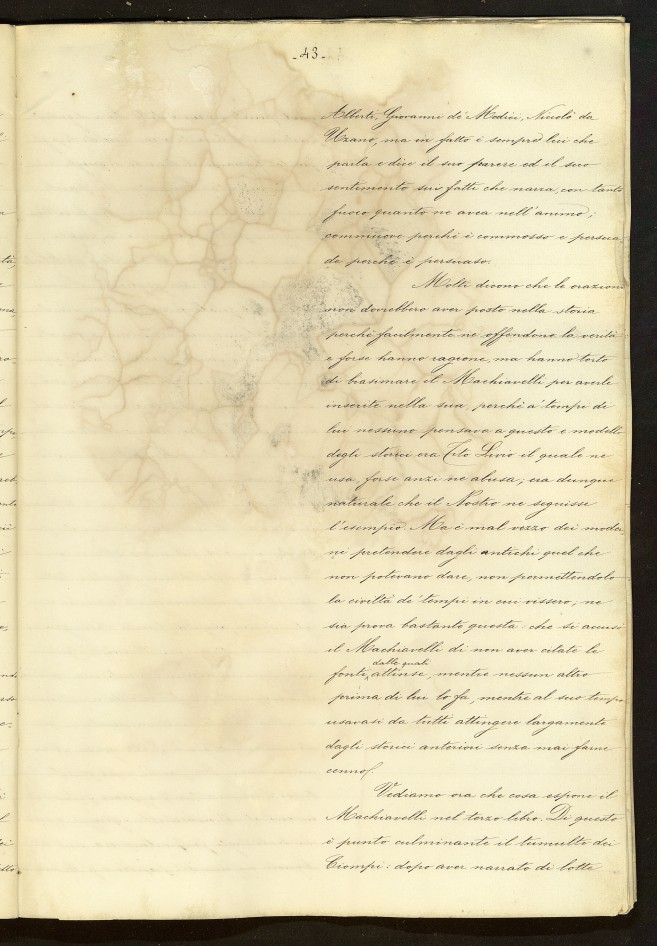 - 43 -
Alberti, Giovanni de' Medici, Niccolò da
Uzano, ma in fatto è sempre lui che
parla e dice il suo parere ed il suo
sentimento sui fatti che narra, con tanto
fuoco quanto ne avea nell'animo;
commuove perchè è commosso e persua
de perchè è persuaso.
Molti dicono che le orazioni
non dovrebbero aver posto nella storia
perchè facilmente ne offendono la verità
e forse hanno ragione, ma hanno torto
di biasimare il Machiavelli per averle
inserite nella sua, perchè a' tempi di
lui nessuno pensava a questo e modello
degli storici era Tito Livio il quale ne
usa, forse anzi ne abusa; era dunque
naturale che il Nostro ne seguisse
l'esempio. Ma è mal vezzo dei moder
ni pretendere dagli antichi quel che
non potevano dare, non permettendolo
la civiltà de' tempi in cui vissero; ne
sia prova bastante questa: che si accusi
il Machiavelli di non aver citato le
fonti dalle quali attinse, mentre nessun altro
prima di lui lo fa, mentre al suo tempo
usavasi da tutti attingere largamente
dagli storici anteriori senza mai farne
cenno.
Vediamo ora che cosa espone il
Machiavelli nel terzo libro. Di questo
è punto culminante il tumulto dei
Ciompi: dopo aver narrato di lotte